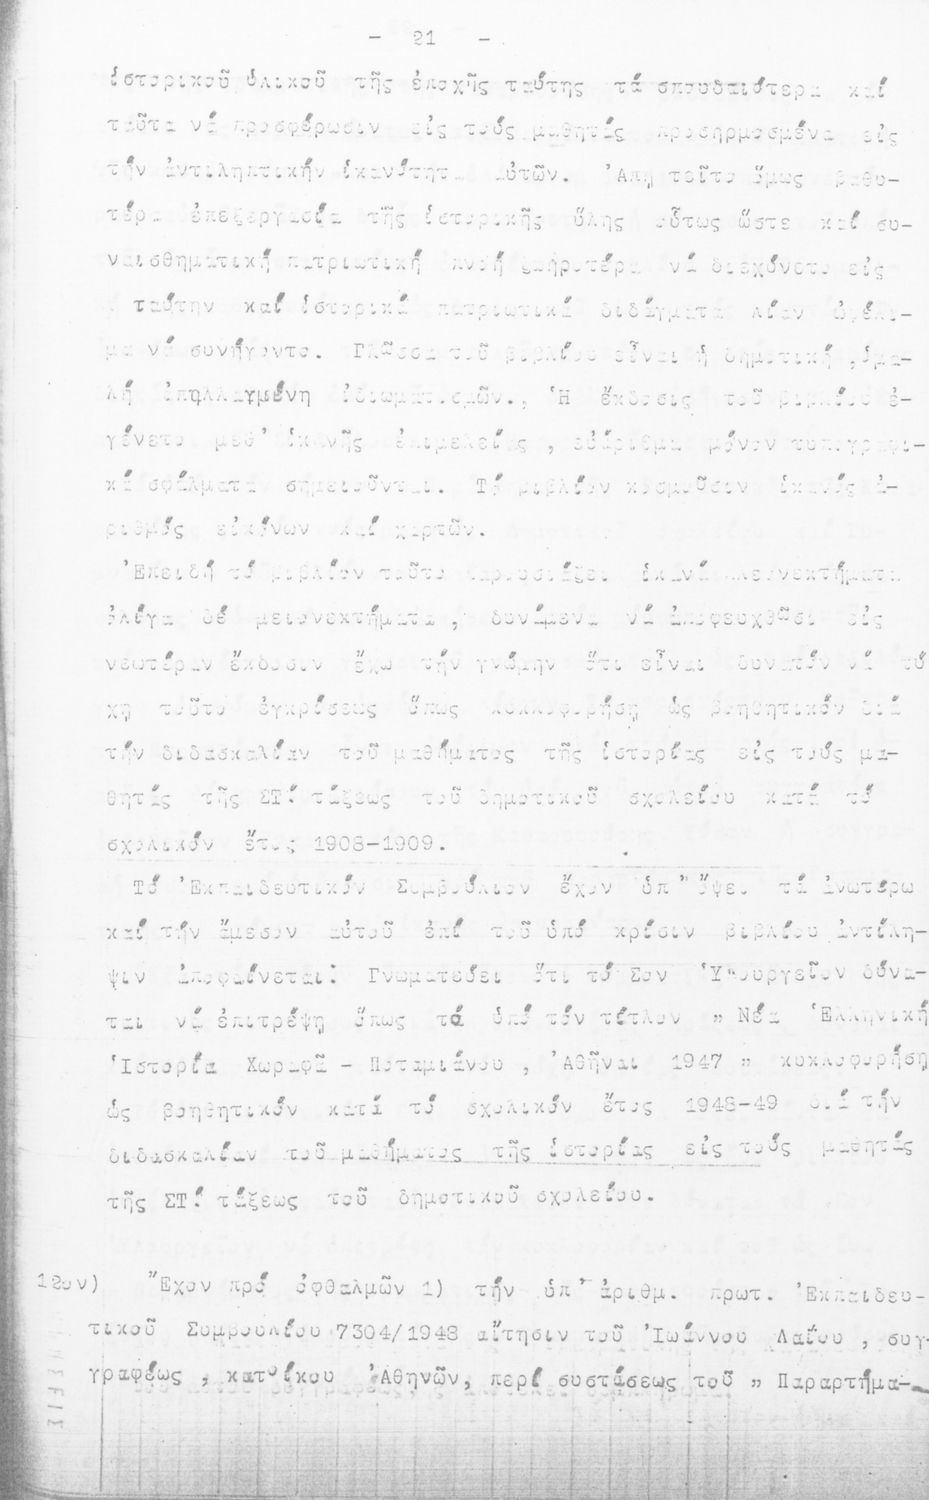 - 21 -
ἱστορικοῦ ὑλικοῦ τῆς ἐποχῆς ταύτης τά σπουδαιότερα καί
ταῦτα νά προσφέρωσιν εἰς τούς μαθητάς προσηρμοσμένα εἰς
τήν ἀντιληπτικήν ἱκανότητα αὐτῶν. Ἀπητεῖτο ὅμως βαθυ-
τέρα ἐπεξεργασία τῆς ἱστορικῆς ὕλης οὕτως ὥστε καί συ-
ναισθηματική πατριωτική πνοή ζωηροτέρα νά διεχύνετο εἰς
ταύτην καί ἱστορικά πατριωτικά διδάγματα λίαν ὠφέλι-
μα νά συνήγοντο. Γλῶσσα τοῦ βιβλίου εἶναι ἡ δημοτική, ὁμα-
λή ἀπηλλαγμένη ἰδιωματισμῶν., Ἡ ἔκδοσις τοῦ βιβλίου ἐ-
γένετο μεθ' ἱκανῆς ἐπιμελείας, εὐάριθμα μόνον τυπογραφι-
κά σφάλματα σημειοῦνται. Τό βιβλίον κοσμοῦσιν ἱκανός ἀ-
ριθμός εἰκόνων καί χαρτῶν.
Ἐπειδή τό βιβλίον τοῦτο παρουσιάζει ἱκανά πλεονεκτήματα
ὀλίγα δέ μειονεκτήματα, δυνάμενα νά ἀποφευχθῶσι εἰς
νεωτέραν ἔκδοσιν ἔχω τήν γνώμην ὅτι εἶναι δυνατόν νά τύ
χῃ τοῦτο ἐγκρίσεως ὅπως κυκλοφορήσῃ ὡς βοηθητικόν διά
τήν διδασκαλίαν τοῦ μαθήματος τῆς ἱστορίας εἰς τούς μα-
θητάς τῆς ΣΤ! τάξεως τοῦ δημοτικοῦ σχολείου κατά τό
σχολικόν ἔτος 1908-1909.
Τό Ἐκπαιδευτικόν Συμβούλιον ἔχον ὑπ' ὄψει τά ἀνωτέρω
καί τήν ἄμεσον αὐτοῦ ἐπί τοῦ ὑπό κρίσιν βιβλίου ἀντίλη-
ψιν ἀποφαίνεται: Γνωματεύει ὅτι τό Σον Ὑπουργεῖον δύνα-
ται νά ἐπιτρέψῃ ὅπως τό ὑπό τόν τίτλον " Νέα Ἑλληνική
Ἱστορία Χωραφᾶ - Ποταμιάνου, Ἀθῆναι 1947 " κυκλοφορήσῃ
ὡς βοηθητικόν κατά τό σχολικόν ἔτος 1948-49 διά τήν
διδασκαλίαν τοῦ μαθήματος τῆς ἱστορίας εἰς τούς μαθητάς
τῆς ΣΤ! τάξεως τοῦ δημοτικοῦ σχολείου.
12ον) Ἔχον πρό ὀφθαλμῶν 1) τήν ὑπ' ἀριθμ. πρωτ. Ἐκπαιδευ-
τικοῦ Συμβουλίου 7304/1948 αἴτησιν τοῦ Ἰωάννου Λαΐου, συγ-
γραφέως, κατοίκου Ἀθηνῶν, περί συστάσεως τοῦ " Παραρτήμα-